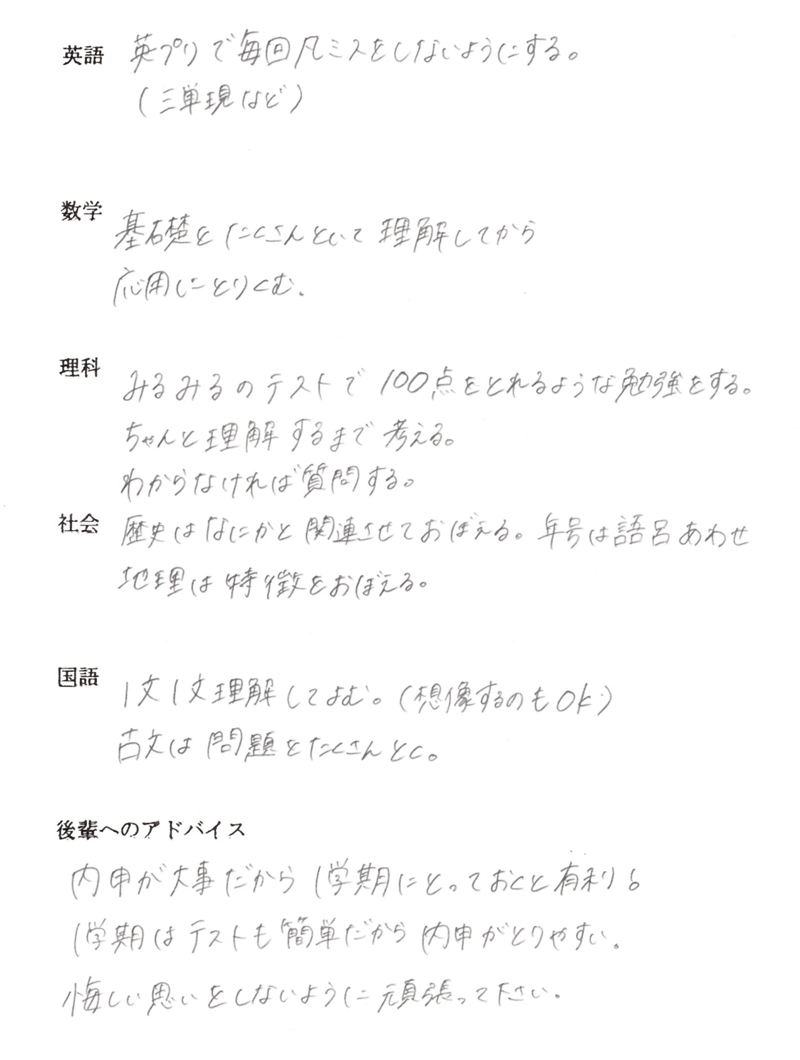 英語 英プリで毎回凡ミスをしないようにする。
(三単現など)
数学 基礎をたくさんといて理解してから
応用にとりくむ.
理科 みるみるのテストで100点をとれるような勉強をする。
ちゃんと理解するまで考える。
わからなければ質問する。
社会 歴史はなにかと関連させておぼえる。年号は語呂あわせ
地理は特徴をおぼえる。
国語 1文1文理解してよむ。(想像するのもOK)
古文は問題をたくさんとく。
後輩へのアドバイス
内申が大事だから1学期にとっておくと有利。
1学期はテストも簡単だから内申がとりやすい.
悔しい思いをしないように頑張って下さい.